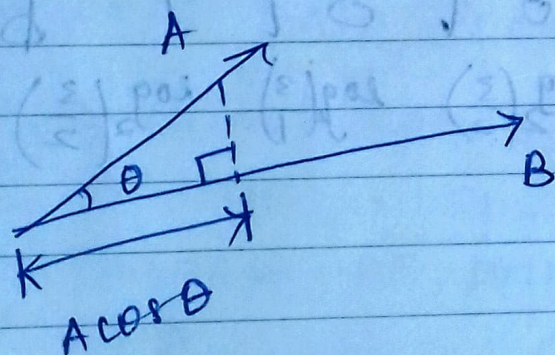 A
θ
B
A cosθ